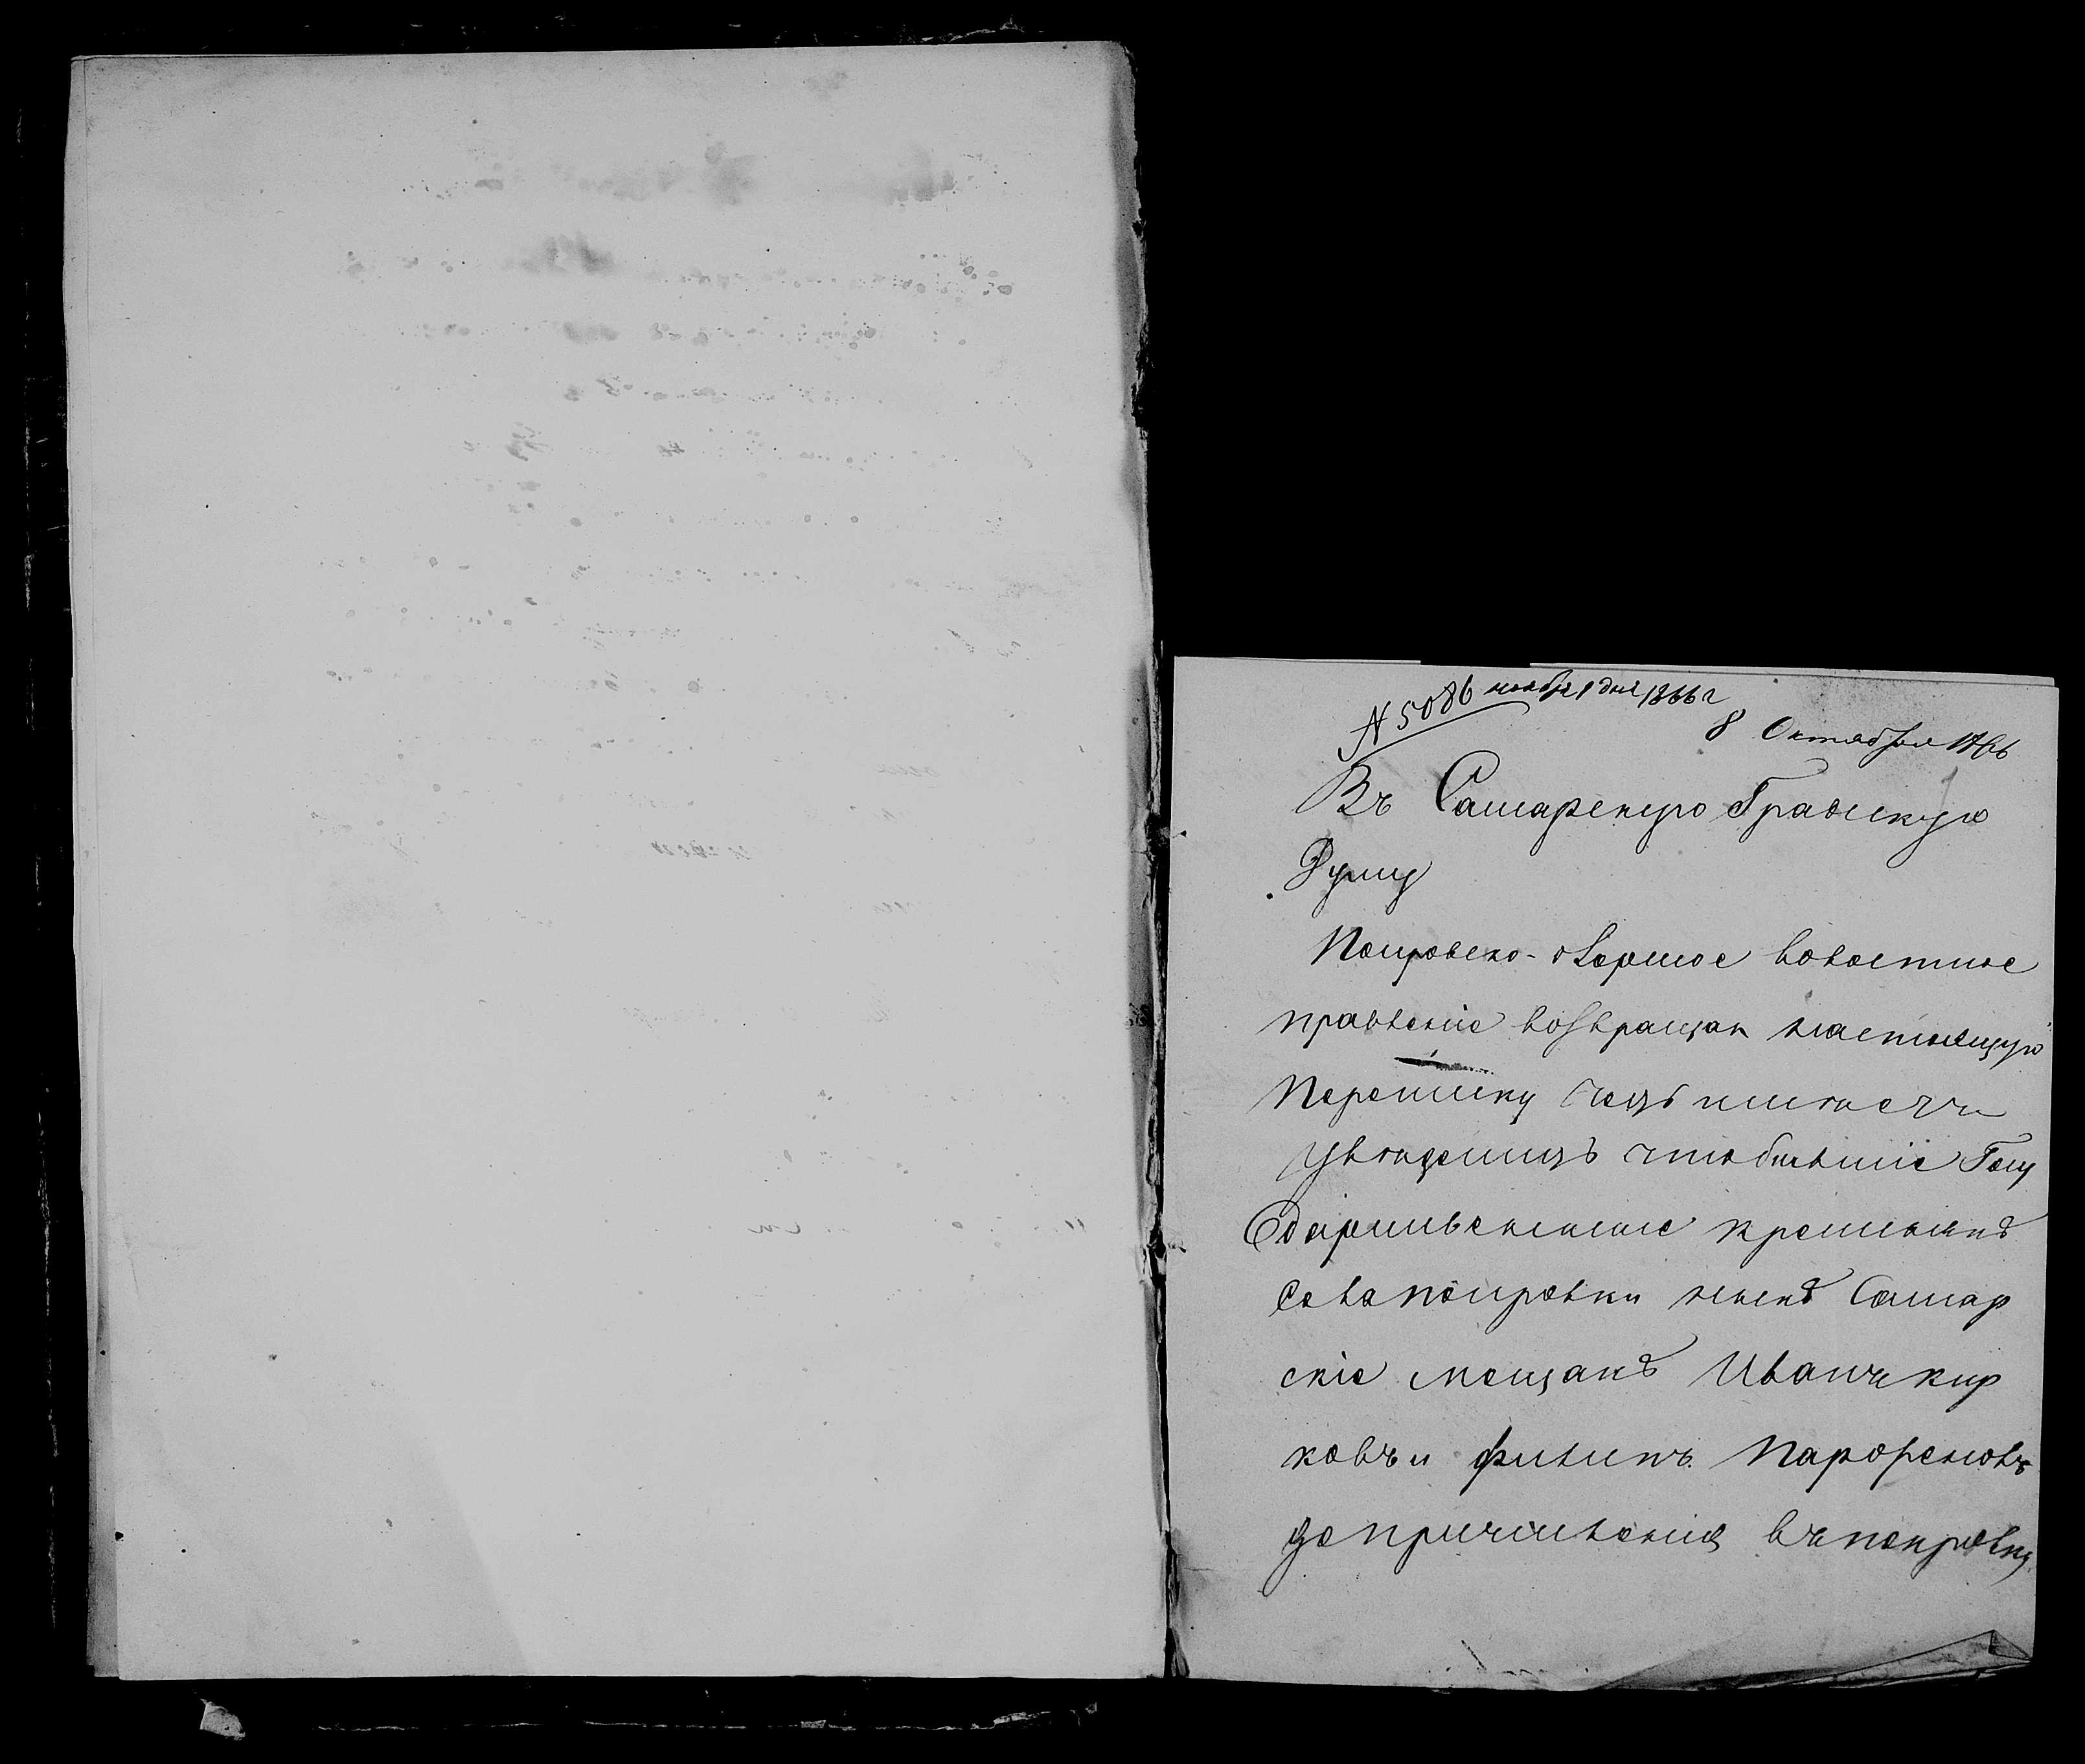 N 5086 ноября 1 дня 1866 г
8 Октября 1866
Въ Самарскую Градскую
Думу
Покровско- Озерное волостное
правленіе возвращая настоящую
Переписку имеетъ честь
Уведомить что бывшіе Госу
Дарственные крестьяне
Села покровки ныне Самар
скіе мещане Иванъ кир
ковъ и филипъ Парфеновъ
до причисленія въ покровку